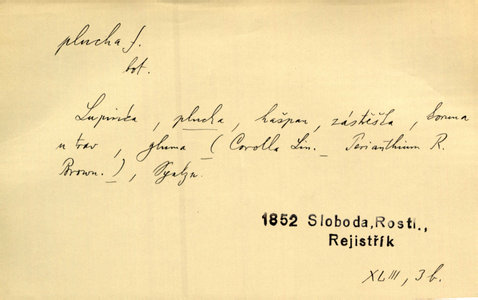 plucha f.
bot.
Lupinka, plucha, kašpan, zástěška, koruna
u trav, gluma (Corolla Lin. _ Perianthium R.
Brown.), Spelze.
1852 Sloboda, Rostl.,
Rejistřík
XLIII, 3 b.